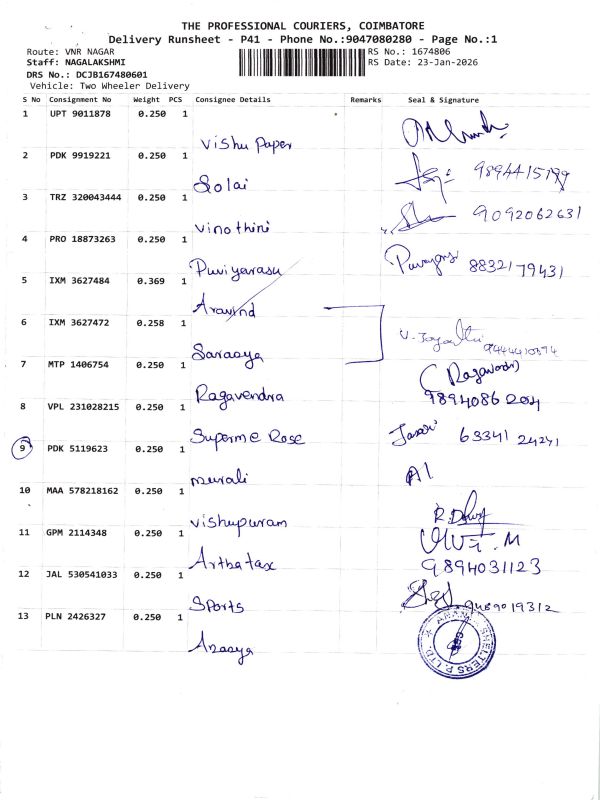 THE PROFESSIONAL COURIERS, COIMBATORE
Delivery Runsheet - P41 - Phone No.:9047080280 - Page No.:1
Route: VNR NAGAR
RS No.: 1674806
Staff: NAGALAKSHMI
RS Date: 23-Jan-2026
DRS No.: DCJB167480601
Vehicle: Two Wheeler Delivery
S No Consignment No Weight PCS Consignee Details Remarks Seal & Signature
1 UPT 9011878 0.250 1
Vishu Paper
2 PDK 9919221 0.250 1
Solai 9894415199
3 TRZ 320043444 0.250 1
Vinothini 9092062631
4 PRO 18873263 0.250 1
Puviyarasu 8832179431
5 IXM 3627484 0.369 1
Aravind
6 IXM 3627472 0.258 1
Saraaya
7 MTP 1406754 0.250 1
Ragavendra
8 VPL 231028215 0.250 1
Superme Rose 63341 24241
9 PDK 5119623 0.250 1
murali A1
10 MAA 578218162 0.250 1
vishupuram
11 GPM 2114348 0.250 1
Artha tax 9894031123
12 JAL 530541033 0.250 1
Sports 9489019312
13 PLN 2426327 0.250 1
Anaaya
SHELTERS P. LTD.